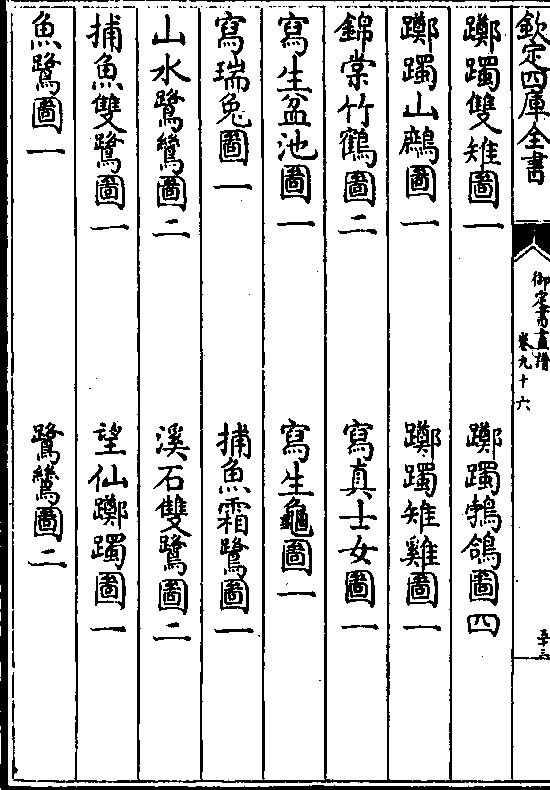 欽定四庫全書
御定書畫譜
卷九十六
五十三
躑躅雙雉圖一　躑躅鵓鴿圖四
躑躅山鷓圖一　躑躅雉雞圖一
錦棠竹鶴圖二　寫真士女圖一
寫生盆池圖一　寫生龜圖一
寫瑞兔圖一　捕魚霜鷺圖一
山水鷺鷥圖二　溪石雙鷺圖二
捕魚雙鷺圖一　望仙躑躅圖一
魚鷺圖一　鷺鷥圖二